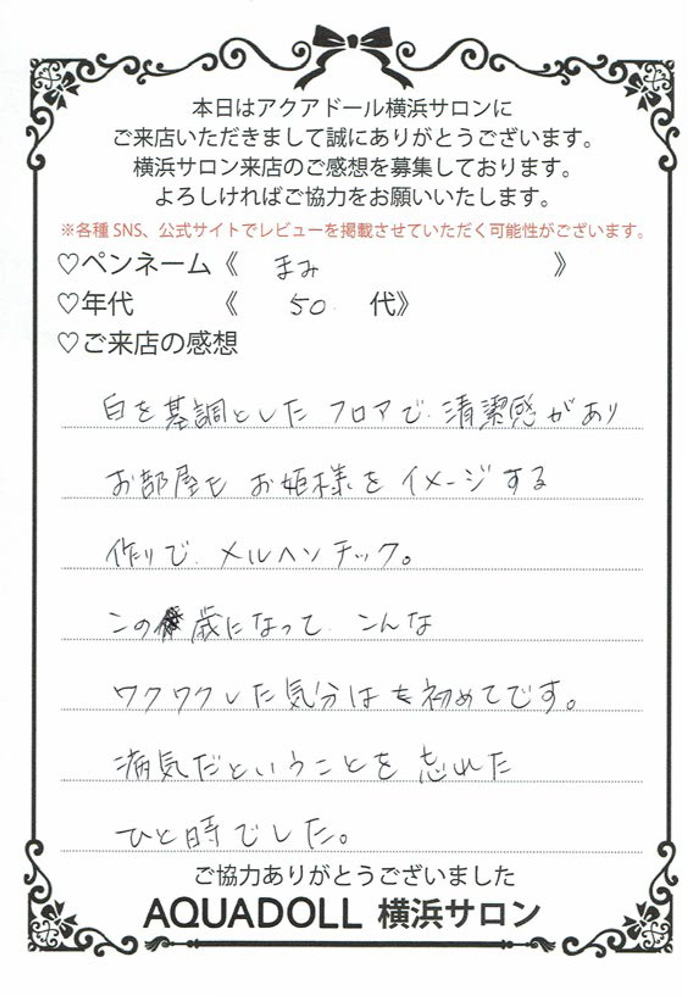 本日はアクアドール横浜サロンに
ご来店いただきまして誠にありがとうございます。
横浜サロン来店のご感想を募集しております。
よろしければご協力をお願いいたします。
※各種SNS、公式サイトでレビューを掲載させていただく可能性がございます。
♡ペンネーム《 まみ 》
♡年代 《 50 代》
♡ご来店の感想
白を基調とした フロアで、清潔感があり
お部屋も お姫様を イメージする
作りで、メルヘンチック。
この歳になって、こんな
ワクワクした気分は初めてです。
病気だということを 忘れた
ひと時でした。
ご協力ありがとうございました
AQUADOLL 横浜サロン